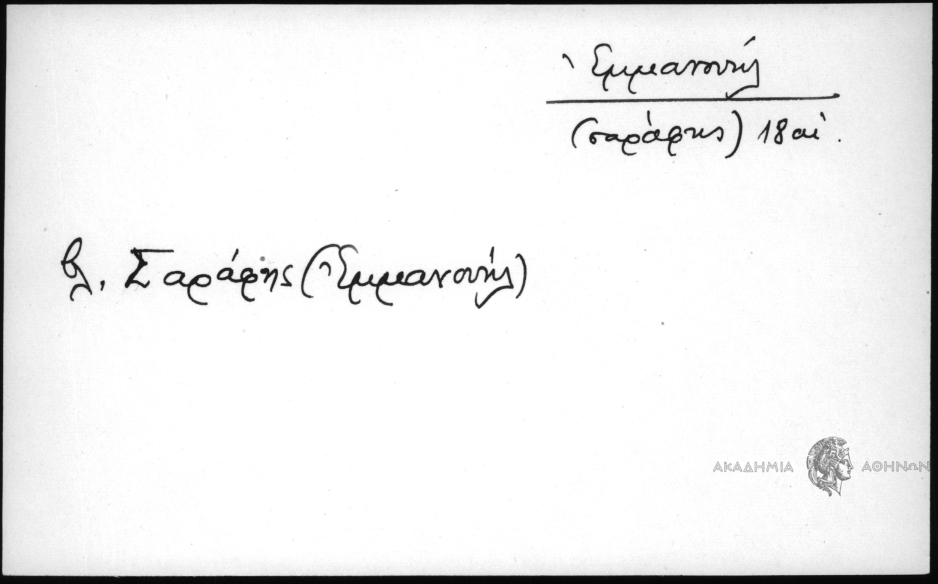 Ἐμμανουήλ
(σαράφης) 18 αἰ.
βλ. Σαράφης (Ἐμμανουήλ)
ΑΚΑΔΗΜΙΑ ΑΘΗΝΩΝ